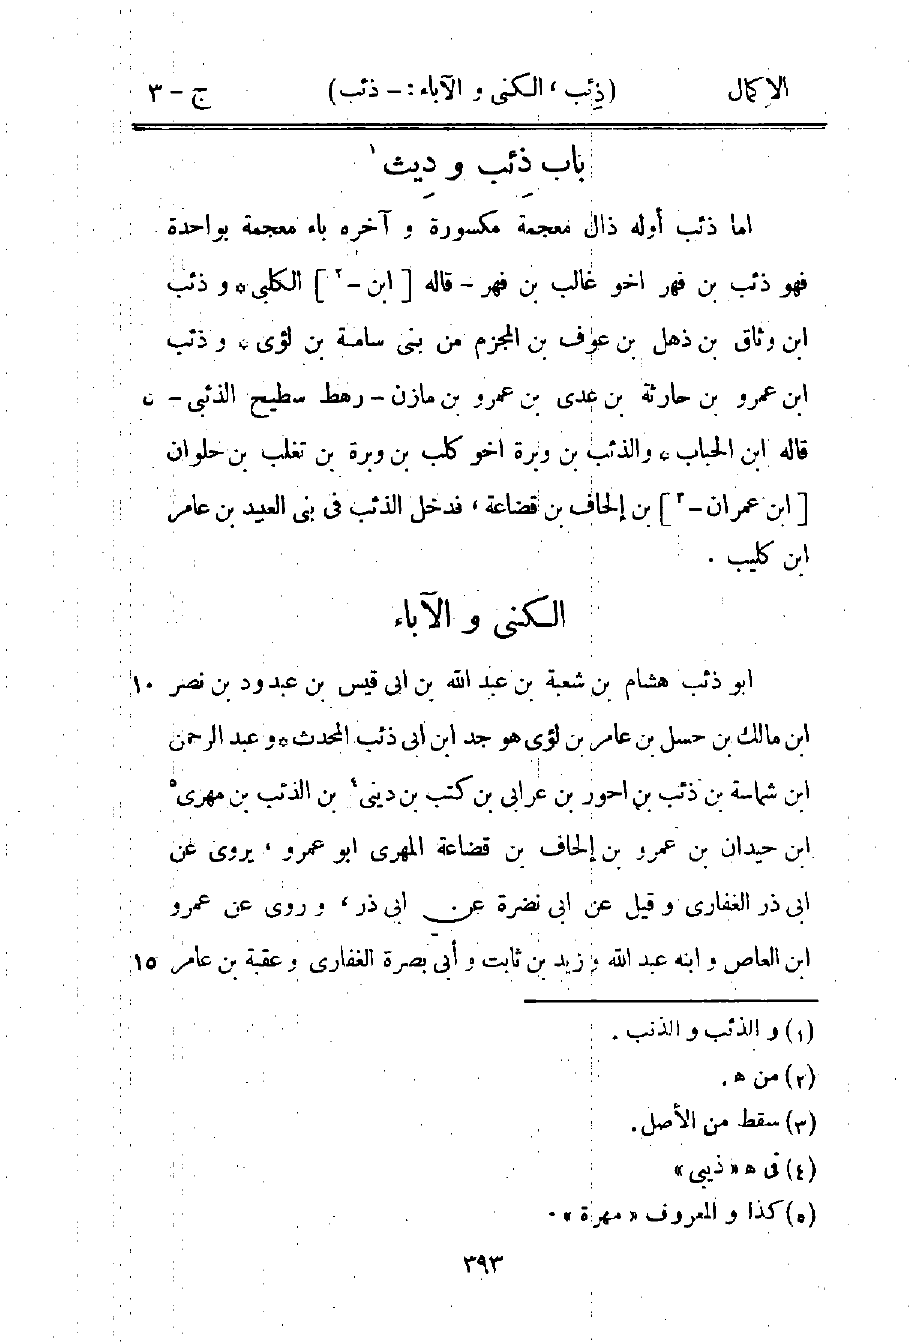 الاكمال (ذِئب ، الكنى و الآباء : - ذئب) ج - ٣
باب ذِئب و دِيث ١
اما ذئب أوله ذال معجمة مكسورة و آخره باء معجمة بواحدة
فهو ذئب بن فهر اخو غالب بن فهر - قاله [ ابن - ٢ ] الكلبى * و ذئب
ابن وثاق بن ذهل بن عوف بن المجزم من بنى سامة بن لؤى * و ذئب
ابن عمرو بن حارثة بن عدى بن عمرو بن مازن - رهط سطيح الذئبى - ٥
قاله ابن الحباب * والذئب بن وبرة اخو كلب بن وبرة بن تغلب بن حلوان
[ ابن عمران - ٣ ] بن إلحاف بن قضاعة ، فدخل الذئب فى بنى العبيد بن عامر
ابن كليب .
الكنى و الآباء
ابو ذئب هشام بن شعبة بن عبد الله بن ابى قيس بن عبدود بن نصر ١٠
ابن مالك بن حسل بن عامر بن لؤى هو جد ابن ابى ذئب المحدث * و عبد الرحمن
ابن شماسة بن ذئب بن احور بن عرابى بن كتب بن دينى ٤ بن الذئب بن مهرى ٥
ابن حيدان بن عمرو بن إلحاف بن قضاعة المهرى ابو عمرو ، يروى عن
ابى ذر الغفارى و قيل عن ابى نضرة عن ابى ذر ، و روى عن عمرو
ابن العاص و ابنه عبد الله و زيد بن ثابت و أبى بصرة الغفارى و عقبة بن عامر ١٥
(١) و الذئب و الذنب .
(٢) من ه .
(٣) سقط من الأصل .
(٤) فى ه « ذيبى »
(٥) كذا و المعروف « مهرة » .
٣٩٣